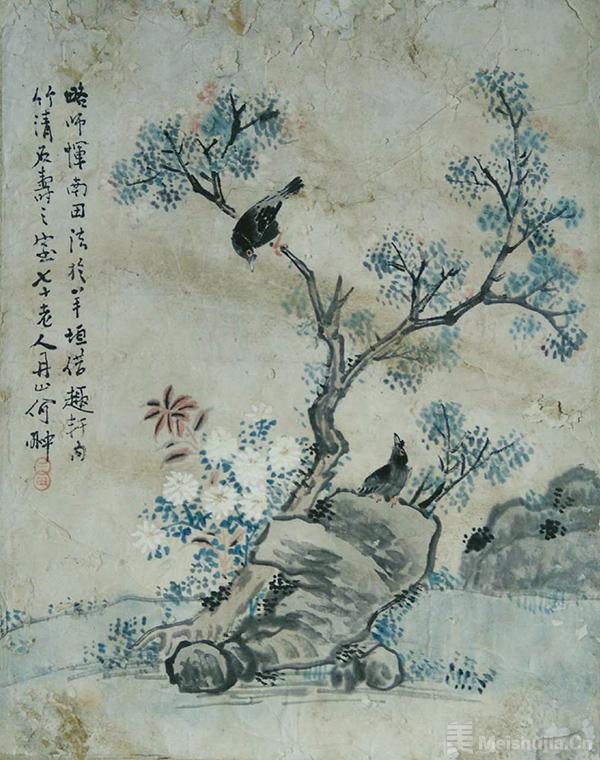 略师惲南田法於羊垣借趣轩内
竹清石壽之室七十老人丹山何翀
美 Meishujia.Cn